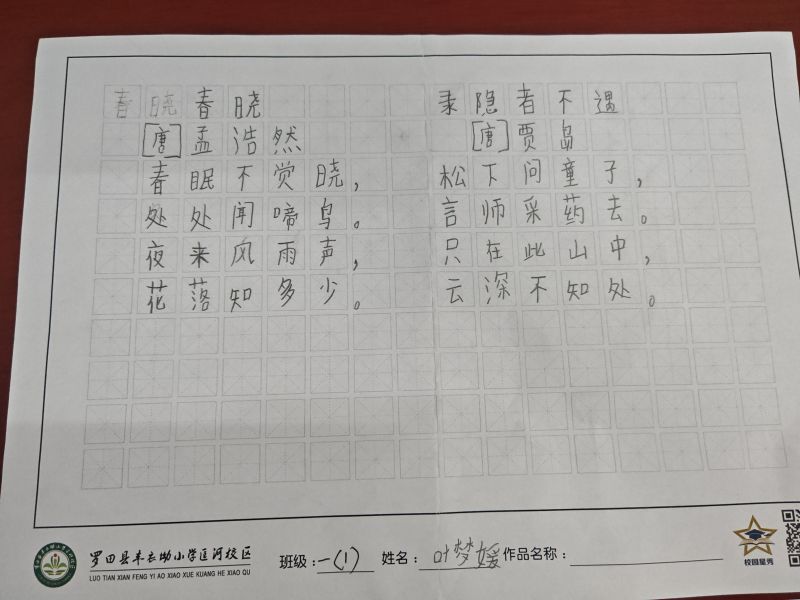 春晓春晓
[唐]孟浩然
春眠不觉晓，
处处闻啼鸟。
夜来风雨声，
花落知多少。
隐者不遇
[唐]贾岛
松下问童子，
言师采药去。
只在此山中，
云深不知处。
罗田县丰衣坳小学匡河校区
LUO TIAN XIAN FENG YI AO XIAO XUE KUANG HE XIAO QU
班级：一(1) 姓名：叶梦媛 作品名称：
校园星秀